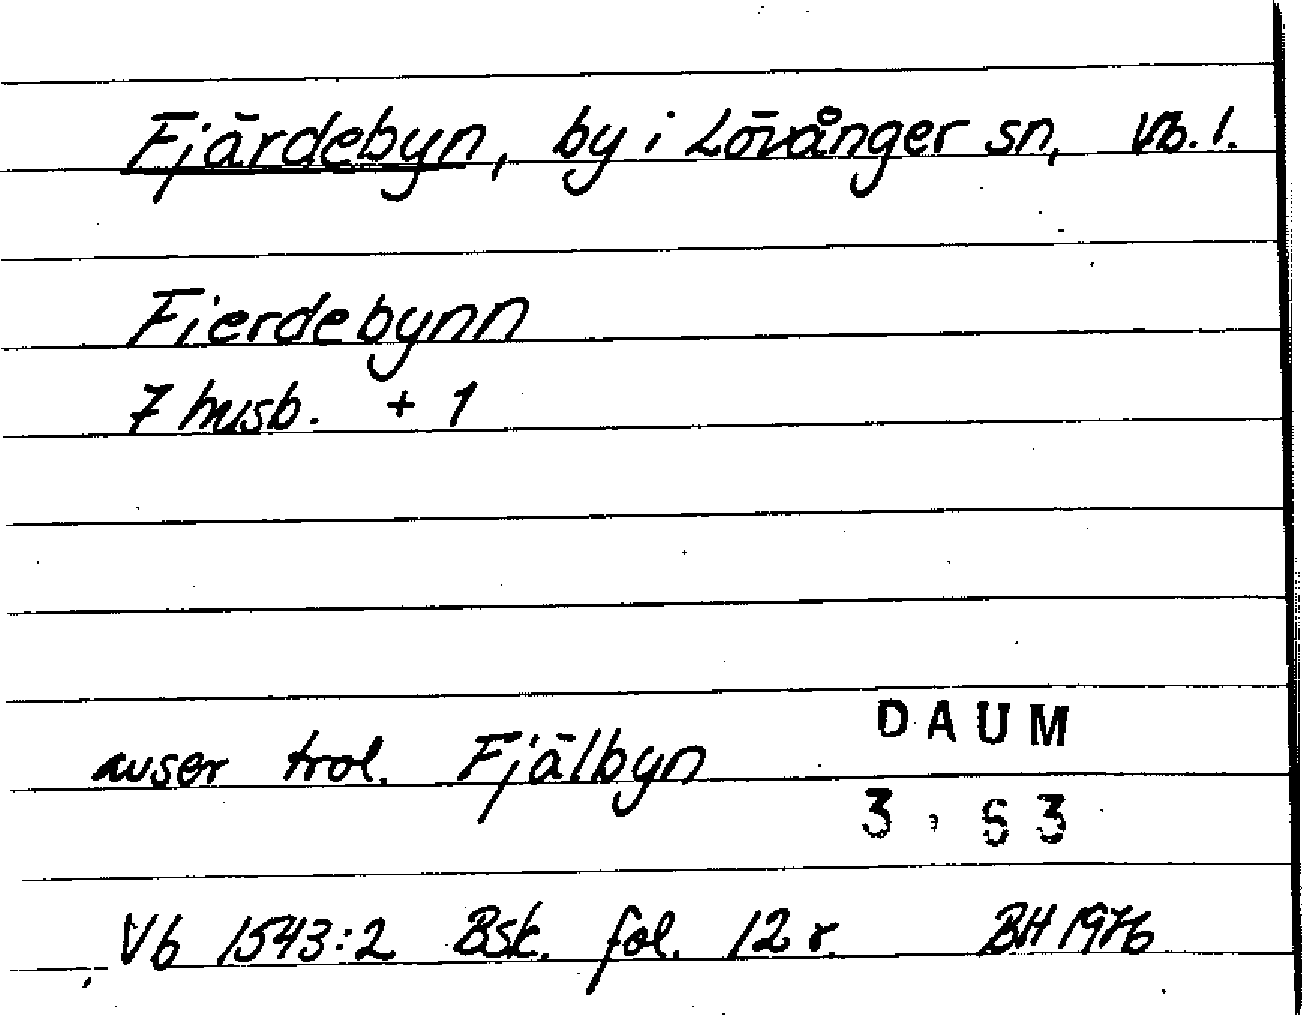 Fjärdebyn, by i Lövånger sn, Vb. l.
Fierdebynn
7 husb. + 1
avser trol. Fjälbyn
DAUM
3 63
Vb 1543:2 Bsk. fol. 12 r. BH 1976